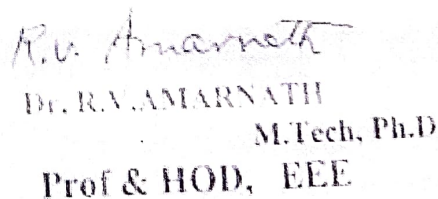 R.V. Amarnath
Dr. R.V.AMARNATH
M.Tech, Ph.D
Prof & HOD, EEE